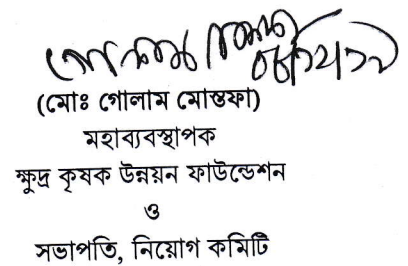 (মোঃ গোলাম মোস্তফা)
মহাব্যবস্থাপক
ক্ষুদ্র কৃষক উন্নয়ন ফাউন্ডেশন
ও
সভাপতি, নিয়োগ কমিটি